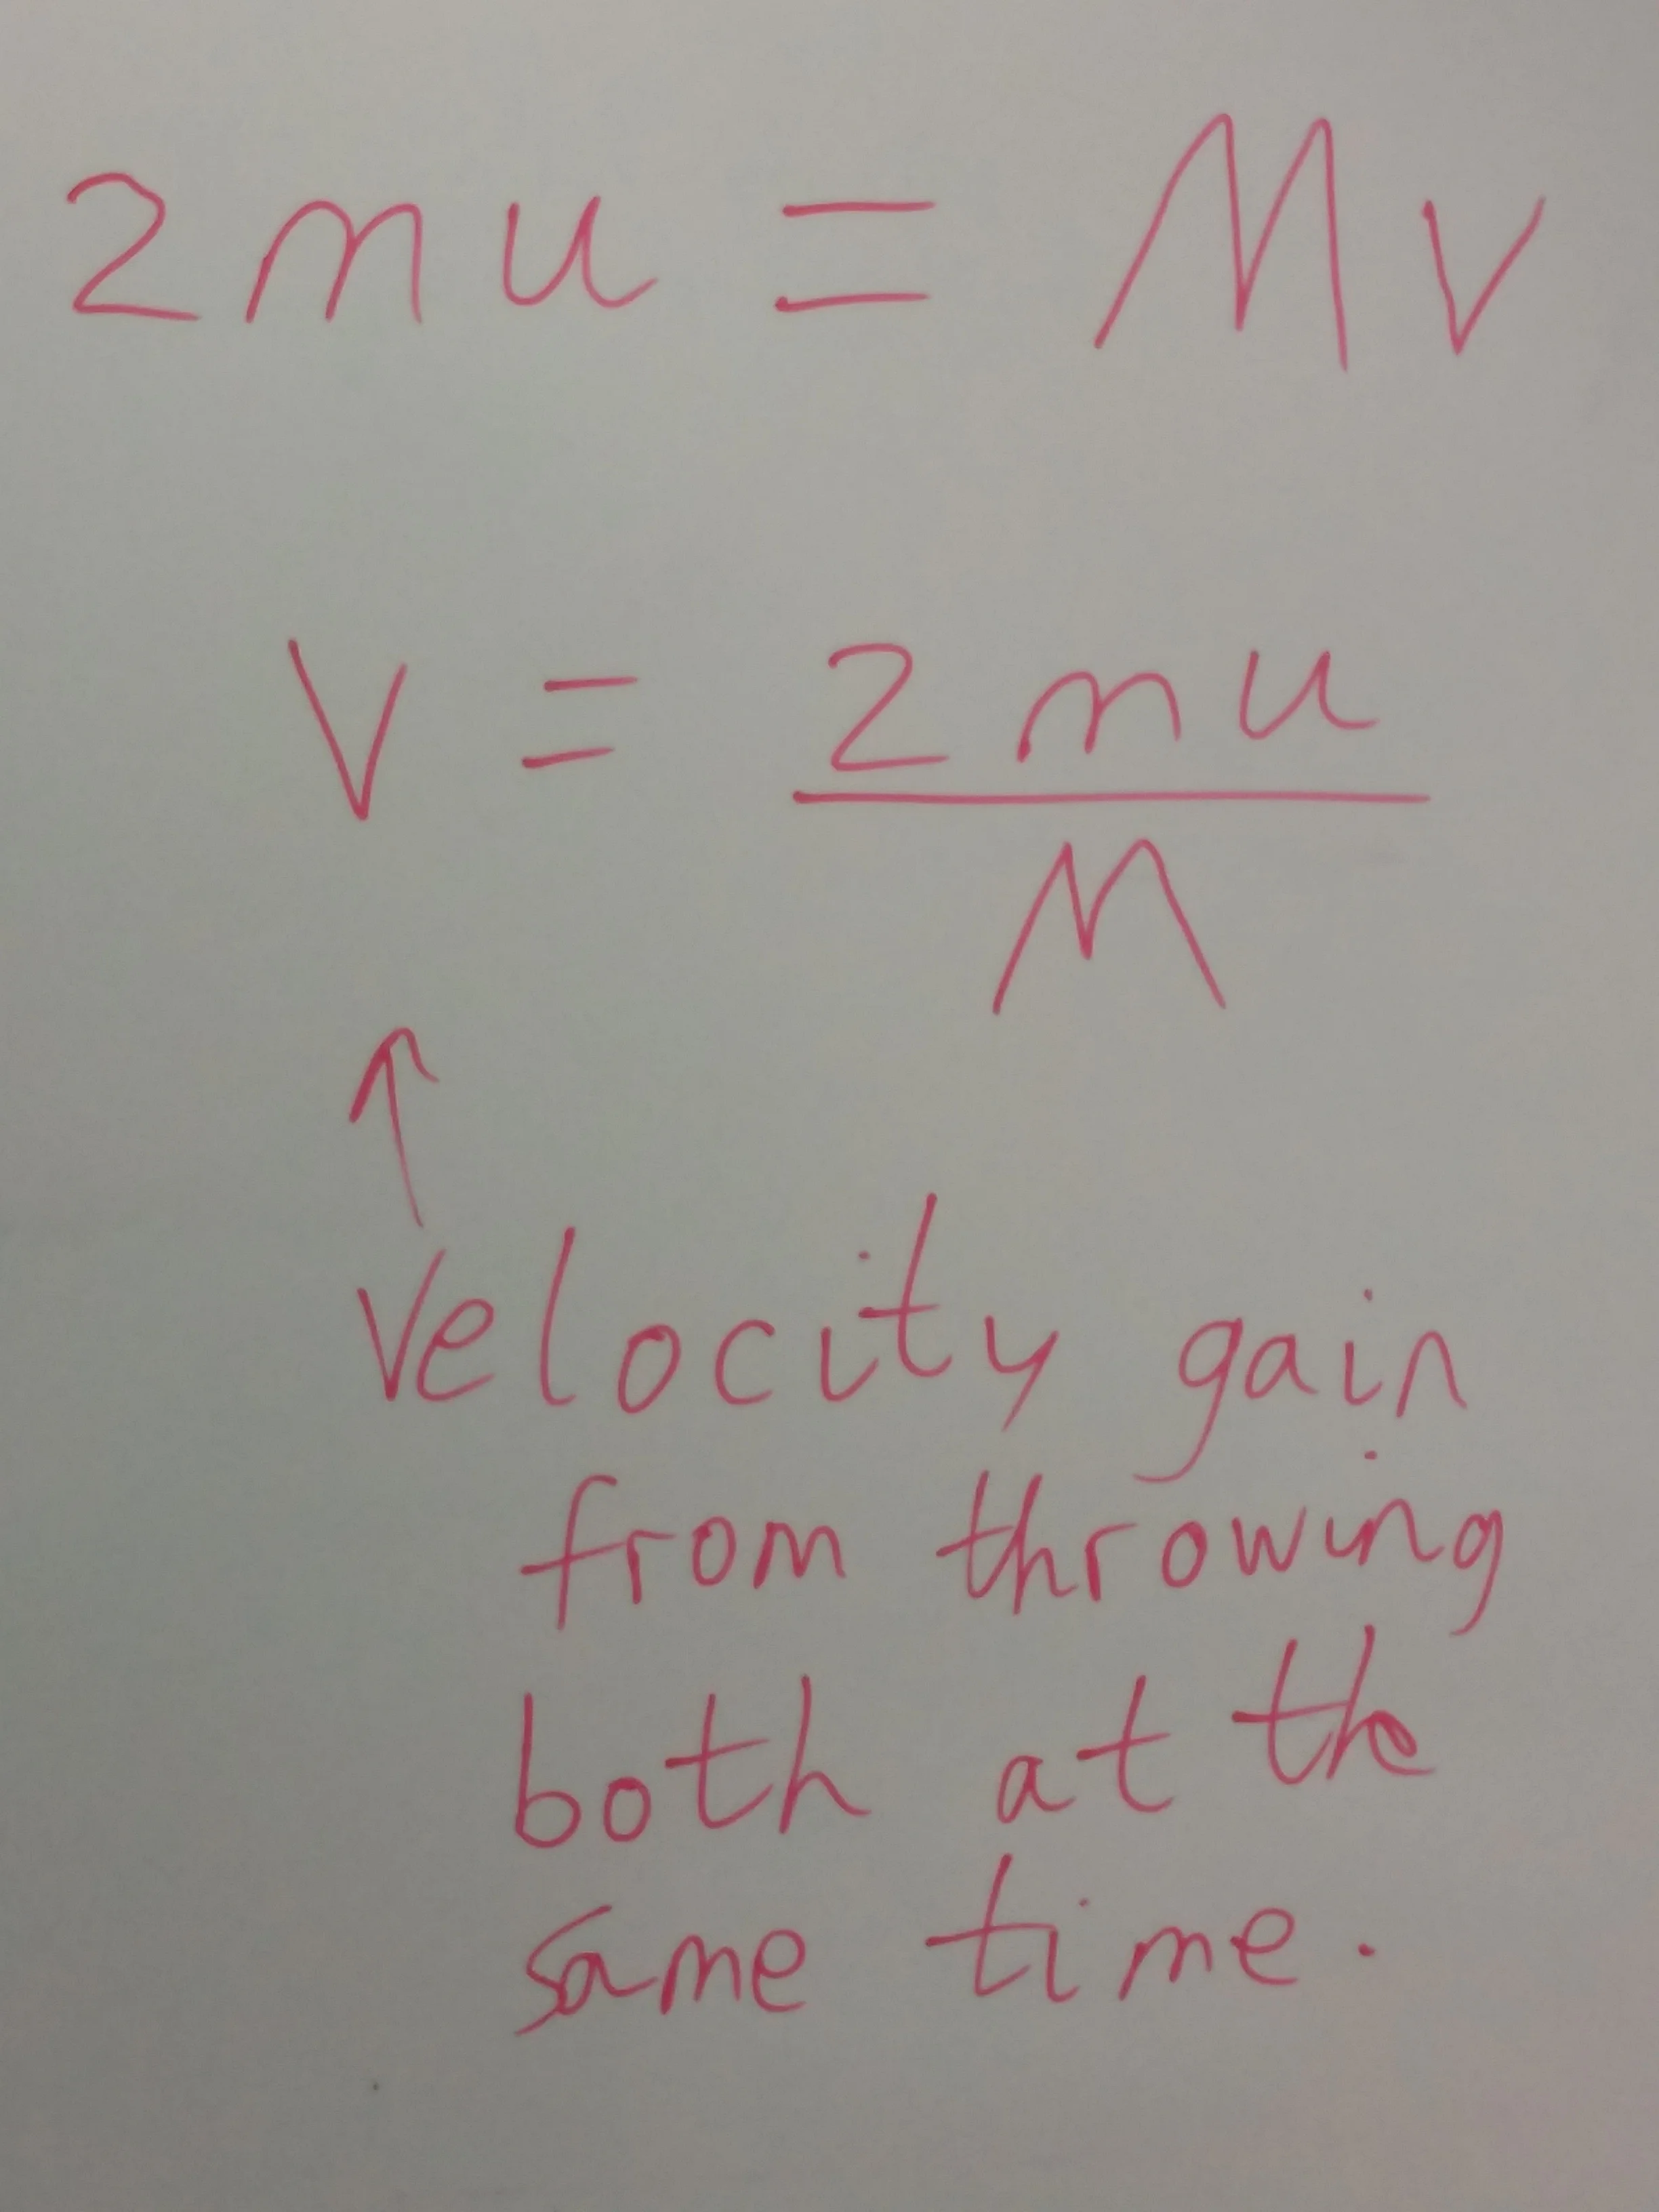 2mu = Mv
v = 2mu
M
↑
Velocity gain
from throwing
both at the
same time.